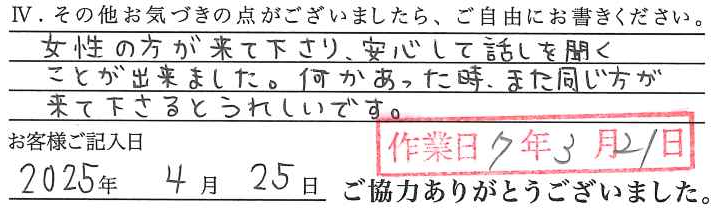 Ⅳ．その他お気づきの点がございましたら、ご自由にお書きください。
女性の方が来て下さり、安心して話しを聞く
ことが出来ました。何かあった時、また同じ方が
来て下さるとうれしいです。
お客様ご記入日
作業日 7年3月21日
2025年 4月 25日 ご協力ありがとうございました。